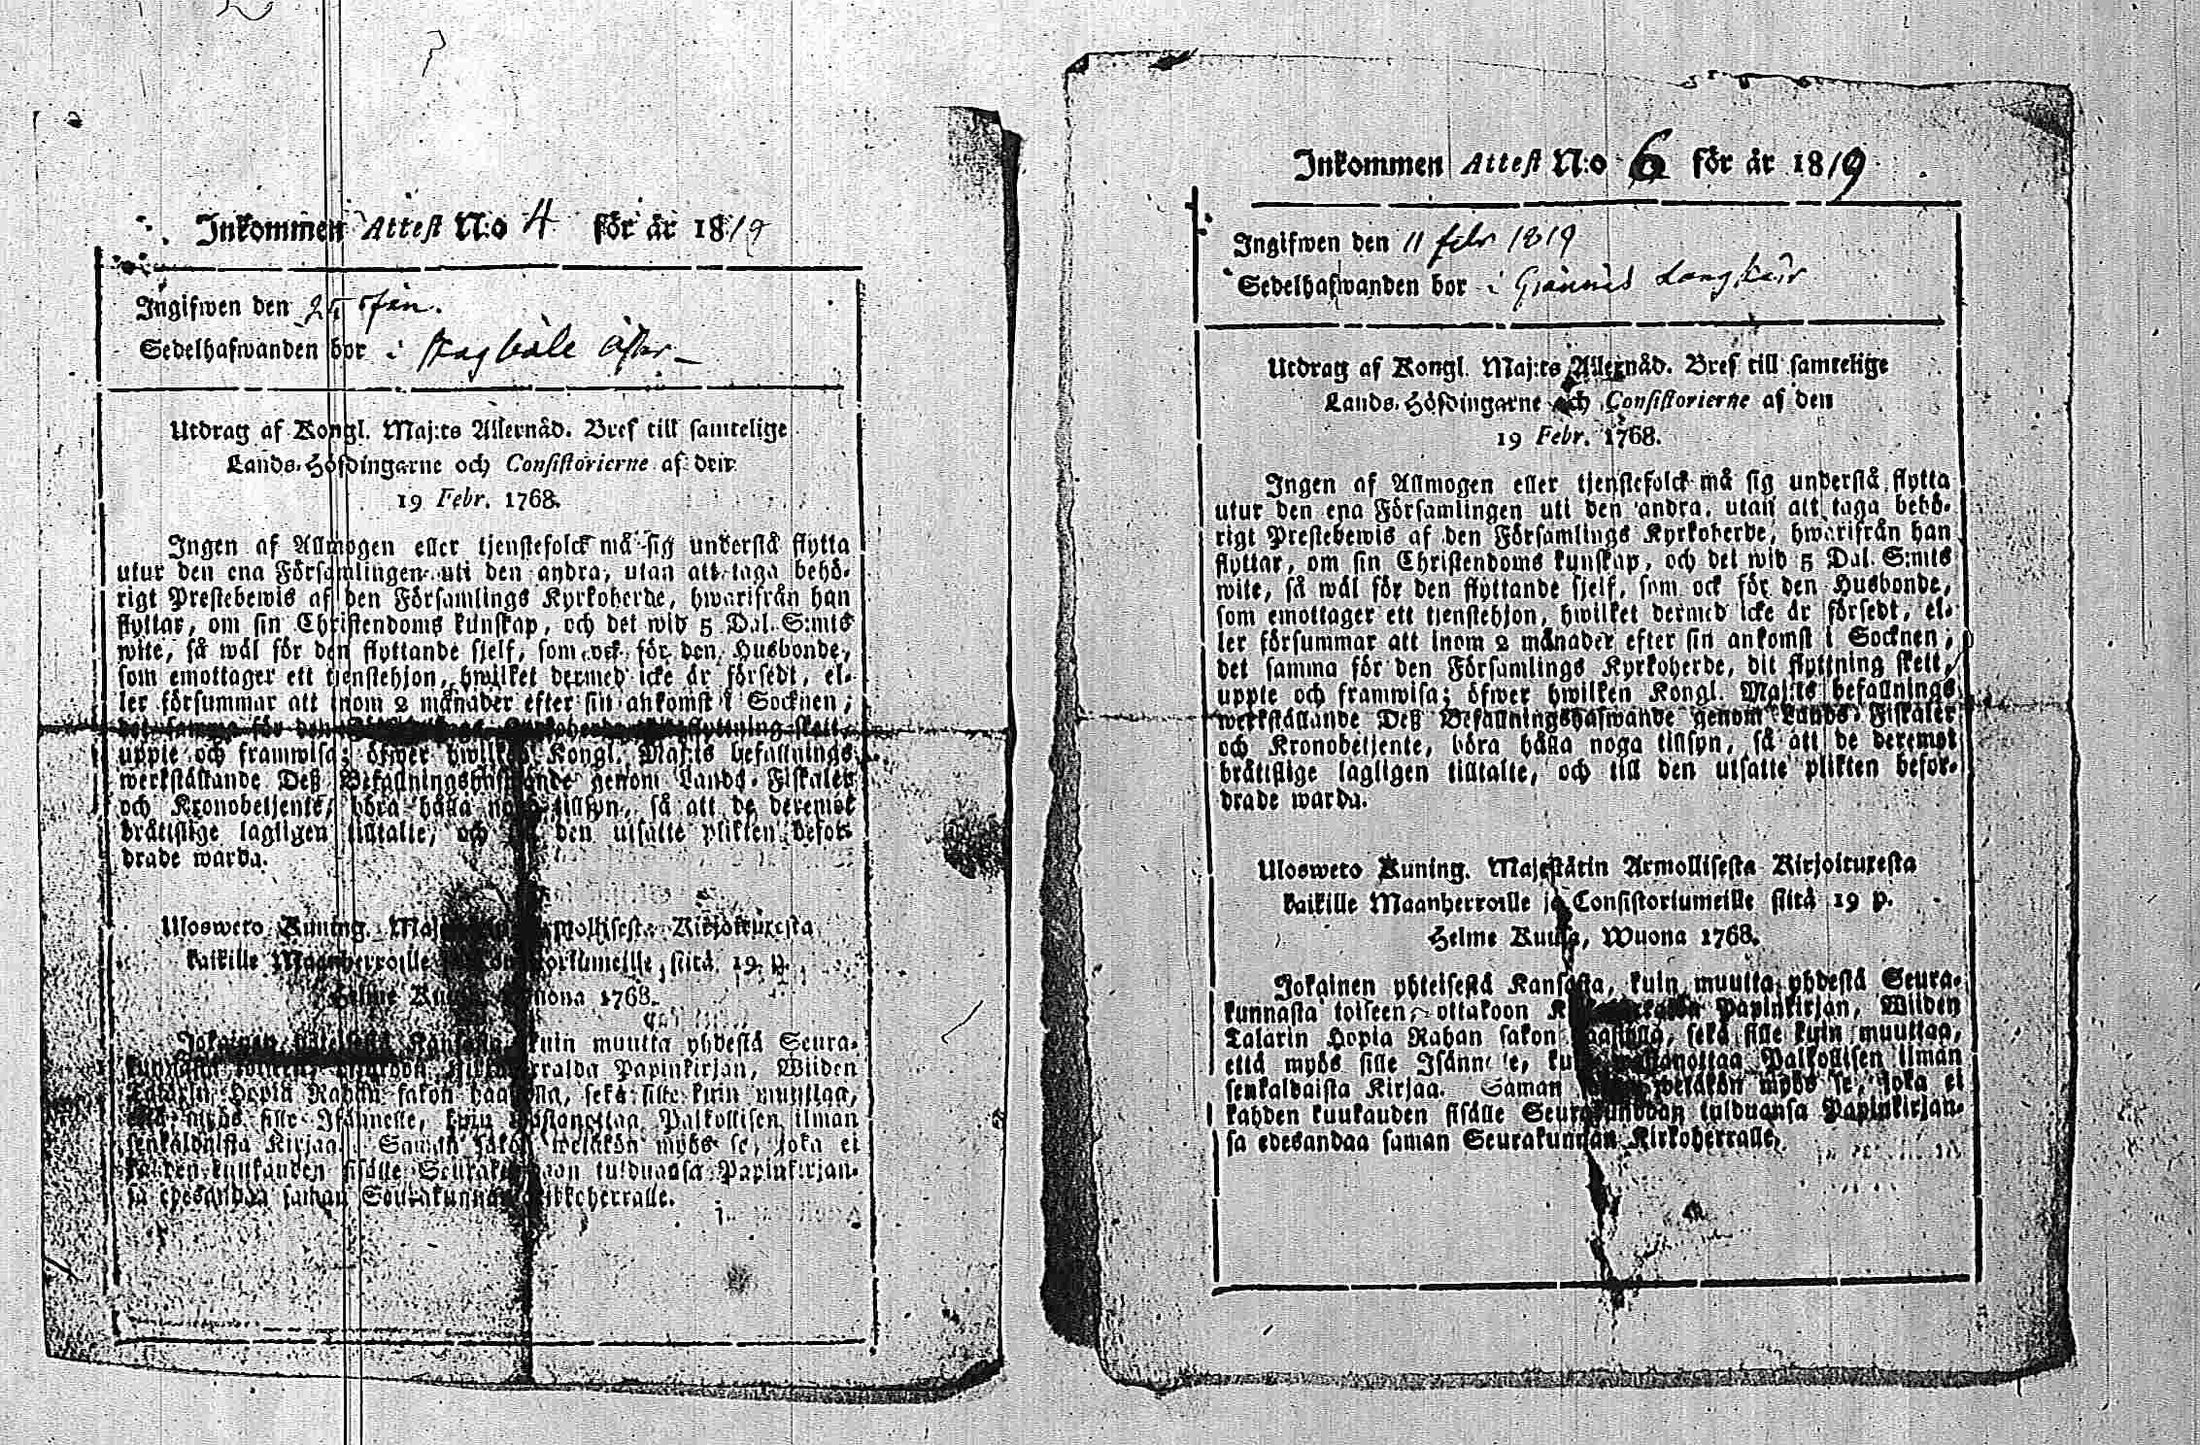 Inkommen Attest N:o 4 för år 1819
Ingifwen den 25 Jan.
Sedelhafwanden bor i
Utdrag af Kongl. Maj:ts Allernåd. Bref till samtelige
Lands-Höfdingarne och Consistorierne af den
19 Febr. 1768.
Ingen af Allmogen eller tjenstefolck må sig understå flytta
utur den ena Församlingen uti den andra, utan att taga behö-
rigt Prestebewis af den Församlings Kyrkoherde, hwarifrån han
flyttar, om sin Christendoms kunskap, och det wid 5 Dal. S:mts
wite, så wäl för den flyttande sjelf, som ock för den Husbonde,
som emottager ett tjenstehjon, hwilket dermed icke är försedt, el-
ler försummar att inom 2 månader efter sin ankomst i Socknen;
det samma för den flyttning skett,
uppte och framwisa; öfwer hwilken Kongl. Maj:ts befallnings
werkställande Deß Befallningshafwande genom Lands-Fiskaler
och Kronobetjente, böra hålla noga tillsyn, så att de deremot
bråttslige lagligen tilltalte, och den utsatte plikten befor-
drade warda.
Ulosweto Kuning. Kirjoituxesta
kaikille Maanherroille siitä 19 p.
Helme 1768.
Jokainen yhteisestä Kansasta, kuin muutta yhdestä Seura-
kunnasta toiseen, ottakoon Papinkirjan, Wiiden
Talarin Hopia Rahan sakon haastolla, sekä sille kuin muuttaa,
että myös sille Isännelle, kuin Palkollisen ilman
senkaldaista Kirjaa. Saman sakon wetäkön myös se, joka ei
kahden kuukauden sisälle tulduansa Papinkirjan-
sa edesandaa saman Seurakunnan Kirkoherralle.
Inkommen Attest N:o 6 för år 1819
Ingifwen den 11 febr 1819
Sedelhafwanden bor i Långkär
Utdrag af Kongl. Maj:ts Allernåd. Bref till samtelige
Lands-Höfdingarne och Consistorierne af den
19 Febr. 1768.
Ingen af Allmogen eller tjenstefolck må sig understå flytta
utur den ena Församlingen uti den andra, utan att taga behö-
rigt Prestebewis af den Församlings Kyrkoherde, hwarifrån han
flyttar, om sin Christendoms kunskap, och det wid 5 Dal. S:mts
wite, så wäl för den flyttande sjelf, som ock för den Husbonde,
som emottager ett tjenstehjon, hwilket dermed icke är försedt, el-
ler försummar att inom 2 månader efter sin ankomst i Socknen,
det samma för den Församlings Kyrkoherde, dit flyttning skett,
uppte och framwisa; öfwer hwilken Kongl. Maj:ts befallnings
werkställande Deß Befallningshafwande genom Lands-Fiskaler
och Kronobetjente, böra hålla noga tillsyn, så att de deremot
bråttslige lagligen tilltalte, och till den utsatte plikten befor-
drade warda.
Ulosweto Kuning. Majestätin Armollisesta Kirjoituxesta
kaikille Maanherroille ja Consistoriumeille siitä 19 p.
Helme Kuusa, Wuona 1768.
Jokainen yhteisestä Kansasta, kuin muutta yhdestä Seura-
kunnasta toiseen, ottakoon Papinkirjan, Wiiden
Talarin Hopia Rahan sakon haastolla, sekä sille kuin muuttaa,
että myös sille Isännelle, Palkollisen ilman
senkaldaista Kirjaa. Saman wetäkön myös se, joka ei
kahden kuukauden sisälle Seurakundaan tulduansa Papinkirjan-
sa edesandaa saman Seurakunnan Kirkoherralle.